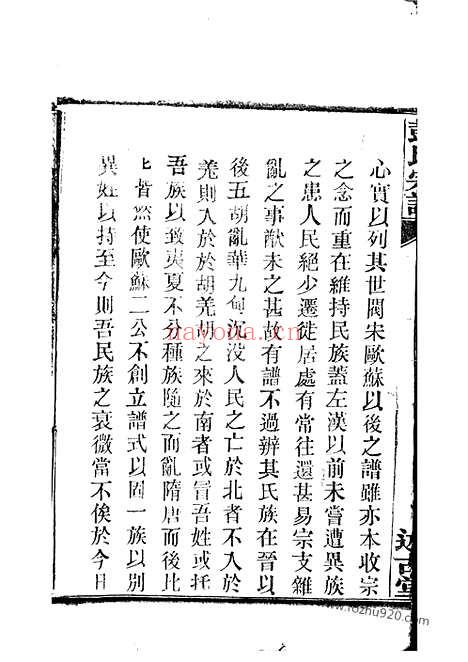 彭氏宗譜
心實以列其世閥宋歐蘇以後之譜雖亦本收宗
之念而重在維持民族蓋左漢以前未嘗遭異族
之患人民絕少遷徙居處有常往還甚易宗支雜
亂之事猷未之甚故有譜不過辨其氏族在晉以
後五胡亂華九甸沉没人民之亡於北者不入於
羌則入於於胡羌胡之來於南者或冒吾姓或托
吾族以致夷夏不分種族隨之而亂隋唐而後比
比皆然使歐蘇二公不創立譜式以固一族以別
異姓以持至今則吾民族之衰微當不俟於今日
述古堂
nayona.cn
www.fozhu920.com